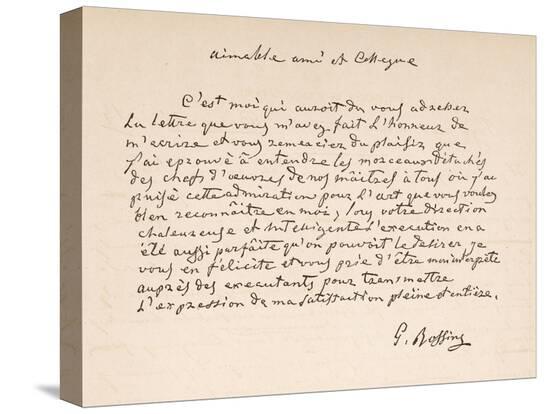 aimable ami et Collegue
C'est moi qui auroit du vous adresser
la lettre que vous m'avez fait l'honneur de
m'ecrire et vous remercier du plaisir que
j'ai eprouvé à entendre les morceaux détachés
des chefs d'oeuvres de nos maîtres à tous où j'ai
puisé cette admiration pour l'art que vous voulez
bien reconnaître en moi; sous votre direction
chaleureuse et Intelligente l'execution en a
été aussi parfaite qu'on pouvoit le desirer, je
vous en félicite et vous prie d'être mon interprète
auprès des executants pour transmettre
l'expression de ma satisfaction pleine et entière.
G. Rossini